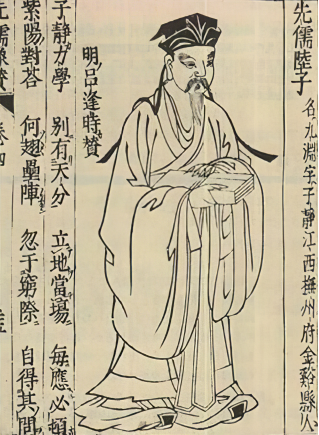 先儒陸子
名九淵字子靜江西撫州府金谿縣人
明呂逢時贊
子靜力學 別有天分 立地當場 每應必頓
紫陽對荅 何趐壘陣 忽于窮際 自得其問